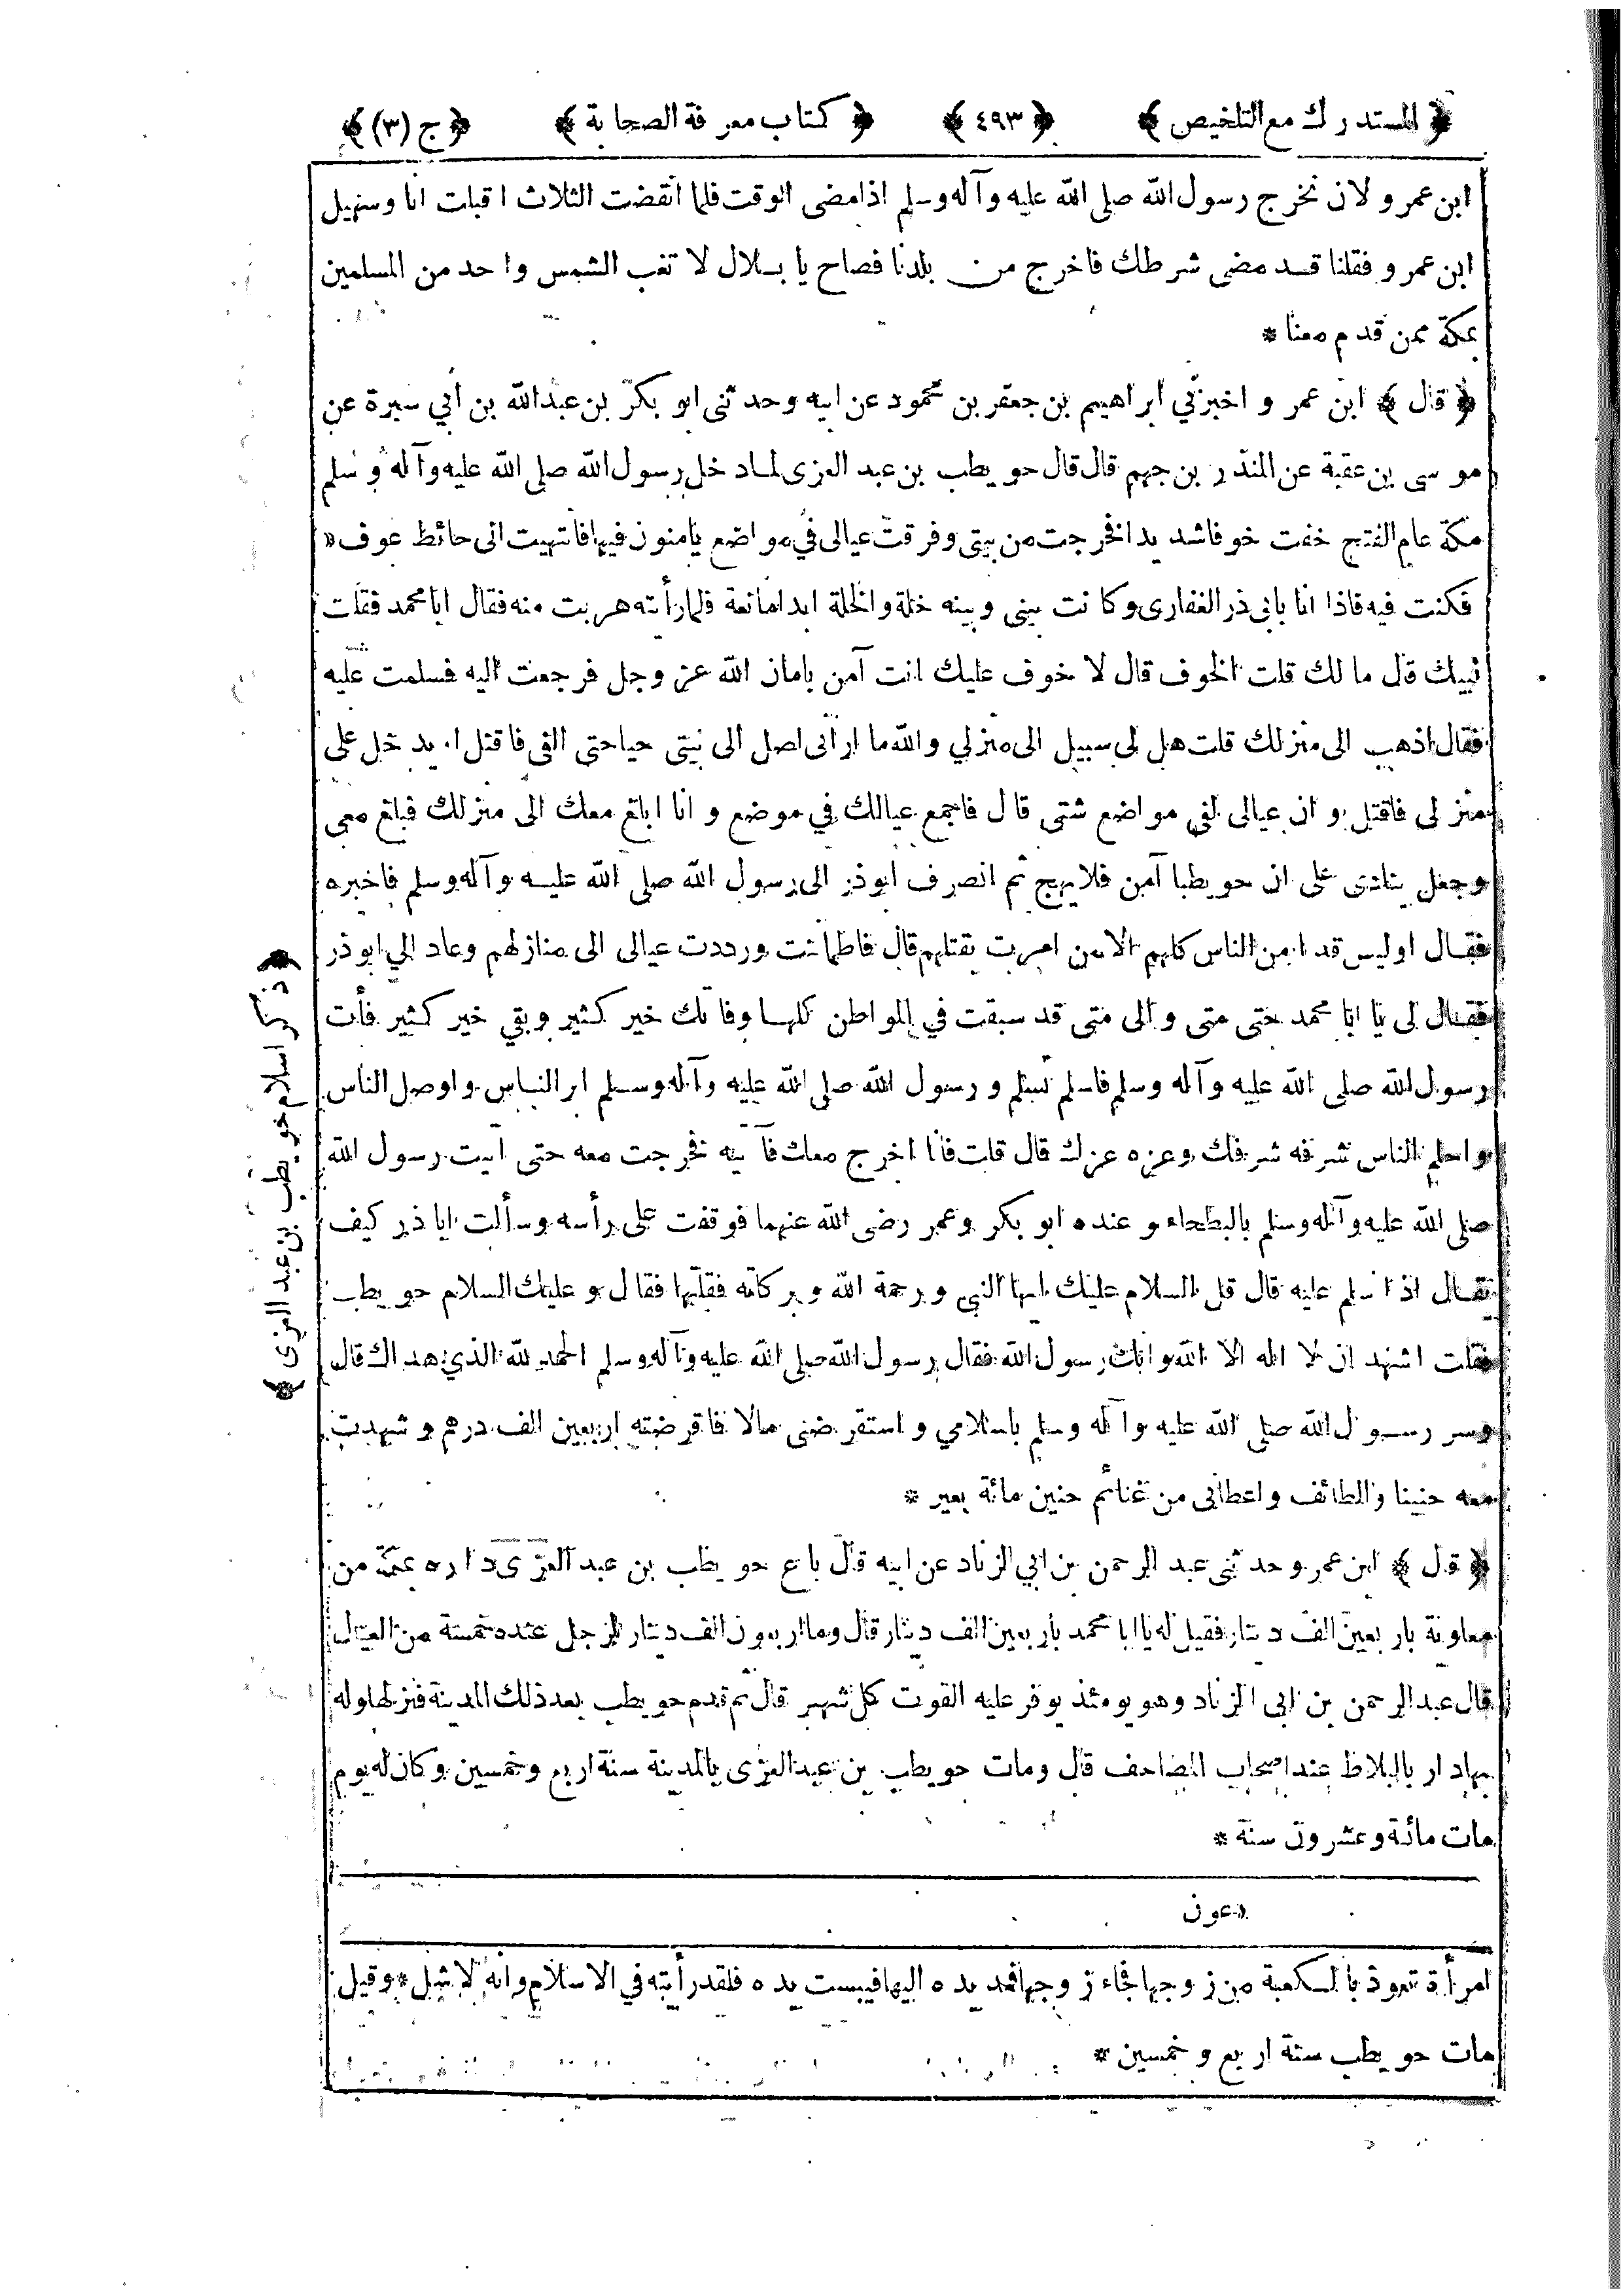 ﴿ المستدرك مع التلخيص ﴾ ﴿ ٤٩٣ ﴾ ﴿ كتاب معرفة الصحابة ﴾ ﴿ ج (٣) ﴾
ابن عمرو لان نخرج رسول الله صلى الله عليه وآله وسلم اذا مضى الوقت فلما انقضت الثلاث اقبلت انا وسهيل
ابن عمرو فقلنا قد مضى شرطك فاخرج من بلدنا فصاح يا بلال لا تغب الشمس واحد من المسلمين
بمكة ممن قدم معنا *
﴿ قال ﴾ ابن عمر و اخبرني ابراهيم بن جعفر بن محمود عن ابيه وحدثنى ابو بكر بن عبد الله بن أبي سبرة عن
موسى بن عقبة عن المنذر بن جهم قال قال حويطب بن عبد العزى لما دخل رسول الله صلى الله عليه وآله وسلم
مكة عام الفتح خفت خوفا شديدا فخرجت من بيتى وفرقت عيالى في مواضع يامنون فيها فانتهيت الى حائط عوف «
فكنت فيه فاذا انا بابى ذر الغفارى وكانت بينى وبينه خلة والخلة ابدا مانعة فلما رأيته هربت منه فقال ابا محمد فقلت
لبيك قال ما لك قلت الخوف قال لا خوف عليك انت آمن بامان الله عز وجل فرجعت اليه فسلمت عليه
فقال اذهب الى منزلك قلت هل لى سبيل الى منزلي والله ما ارانى اصل الى بيتى حيا حتى القى فاقتل او يدخل على
منزلى فاقتل و ان عيالى لفى مواضع شتى قال فاجمع عيالك في موضع و انا ابلغ معك الى منزلك فبلغ معى
وجعل ينادى على ان حويطبا آمن فلا يهج ثم انصرف ابوذر الى رسول الله صلى الله عليه وآله وسلم فاخبره
فقال اوليس قد امن الناس كلهم الا من امرت بقتلهم قال فاطمأننت ورددت عيالى الى منازلهم وعاد الي ابو ذر
فقال لى يا ابا محمد حتى متى والى متى قد سبقت في المواطن كلها وفاتك خير كثير وبقي خير كثير فأت
رسول الله صلى الله عليه وآله وسلم فاسلم تسلم و رسول الله صلى الله عليه وآله وسلم ابر الناس واوصل الناس
واحلم الناس شرفه شرفك وعزه عزك قال قلت فانا اخرج معك فآتيه فخرجت معه حتى اتيت رسول الله
صلى الله عليه وآله وسلم بالبطحاء وعنده ابو بكر وعمر رضى الله عنهما فوقفت على رأسه وسألت ابا ذر كيف
يقال اذا سلم عليه قال قل السلام عليك ايها النبى ورحمة الله وبركاته فقلتها فقال وعليك السلام حويطب
فقلت اشهد ان لا اله الا الله وانك رسول الله فقال رسول الله صلى الله عليه وآله وسلم الحمد لله الذي هداك قال
وسر رسول الله صلى الله عليه وآله وسلم باسلامي و استقرضنى مالا فاقرضته اربعين الف درهم و شهدت
معه حنينا والطائف واعطانى من غنائم حنين مائة بعير *
﴿ قال ﴾ ابن عمر وحدثنى عبد الرحمن بن ابي الزناد عن ابيه قال باع حويطب بن عبد العزى داره بمكة من
معاوية باربعين الف دينار فقيل له يا ابا محمد باربعين الف دينار قال وما اربعون الف دينار لرجل عنده خمسة من العيال
قال عبد الرحمن بن ابى الزناد وهو يومئذ يوفر عليه القوت كل شهر قال ثم قدم حويطب بعد ذلك المدينة فنزلها وله
بها دار بالبلاط عند اصحاب المصاحف قال ومات حويطب بن عبد العزى بالمدينة سنة اربع وخمسين وكان له يوم
مات مائة وعشرون سنة *
﴿ ذكر اسلام حويطب بن عبد العزى ﴾
«عون
امرأة تعوذ بالكعبة من زوجها فجاء زوجها فمد يده اليها فيبست يده فلقد رأيته في الاسلام وانه لاشل * وقيل
مات حويطب سنة اربع وخمسين *